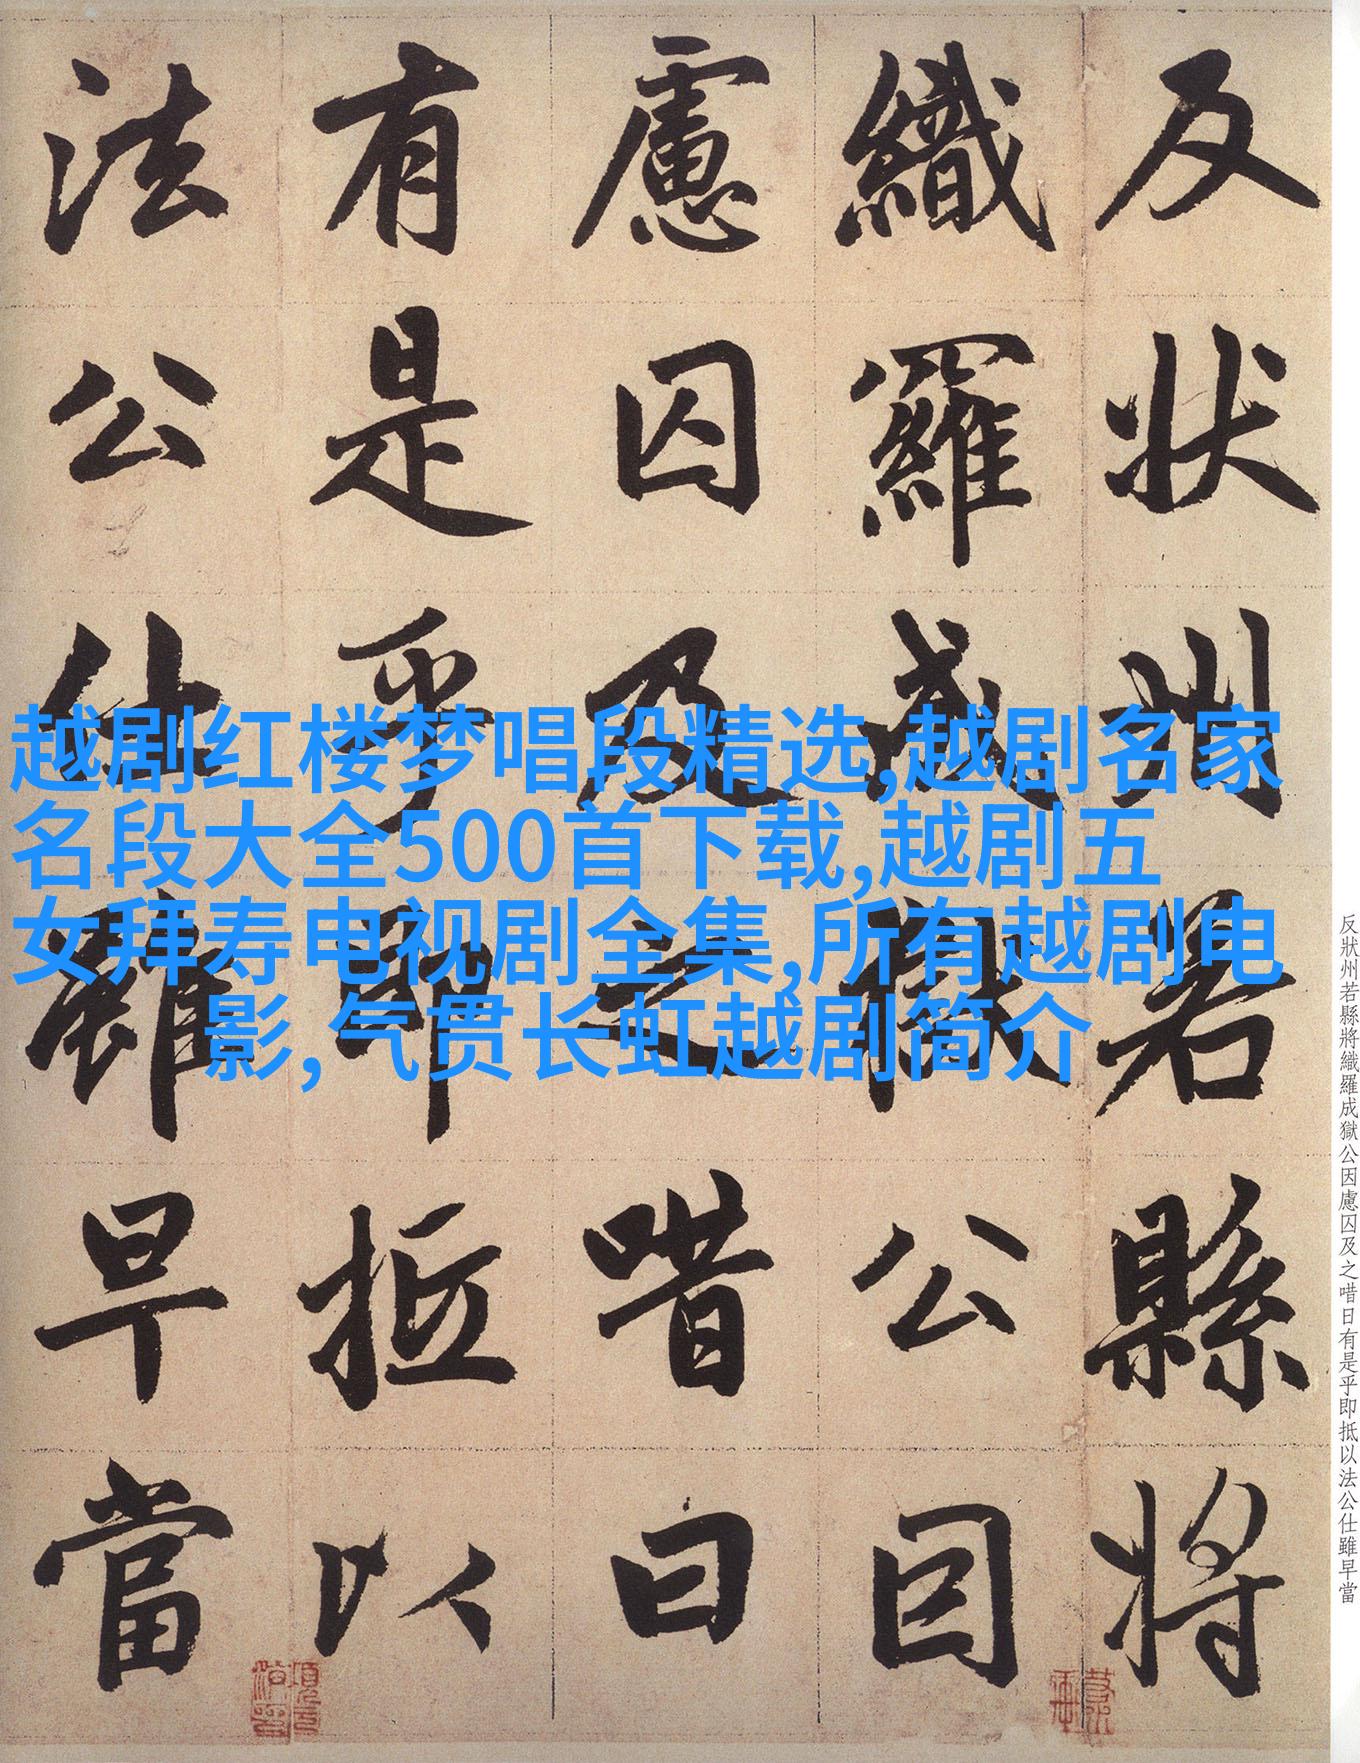 反狀州若縣將
織羅成獄公因
慮囚及之唶曰
有是乎即抵以
法公仕雖早當
越剧红楼梦唱段精选,越剧名家
名段大全500首下载,越剧五
女拜寿电视剧全集,所有越剧电
影,气贯长虹越剧简介
反狀州若縣將織羅成獄公因慮囚及之唶日有是乎即抵以法公仕雖早當